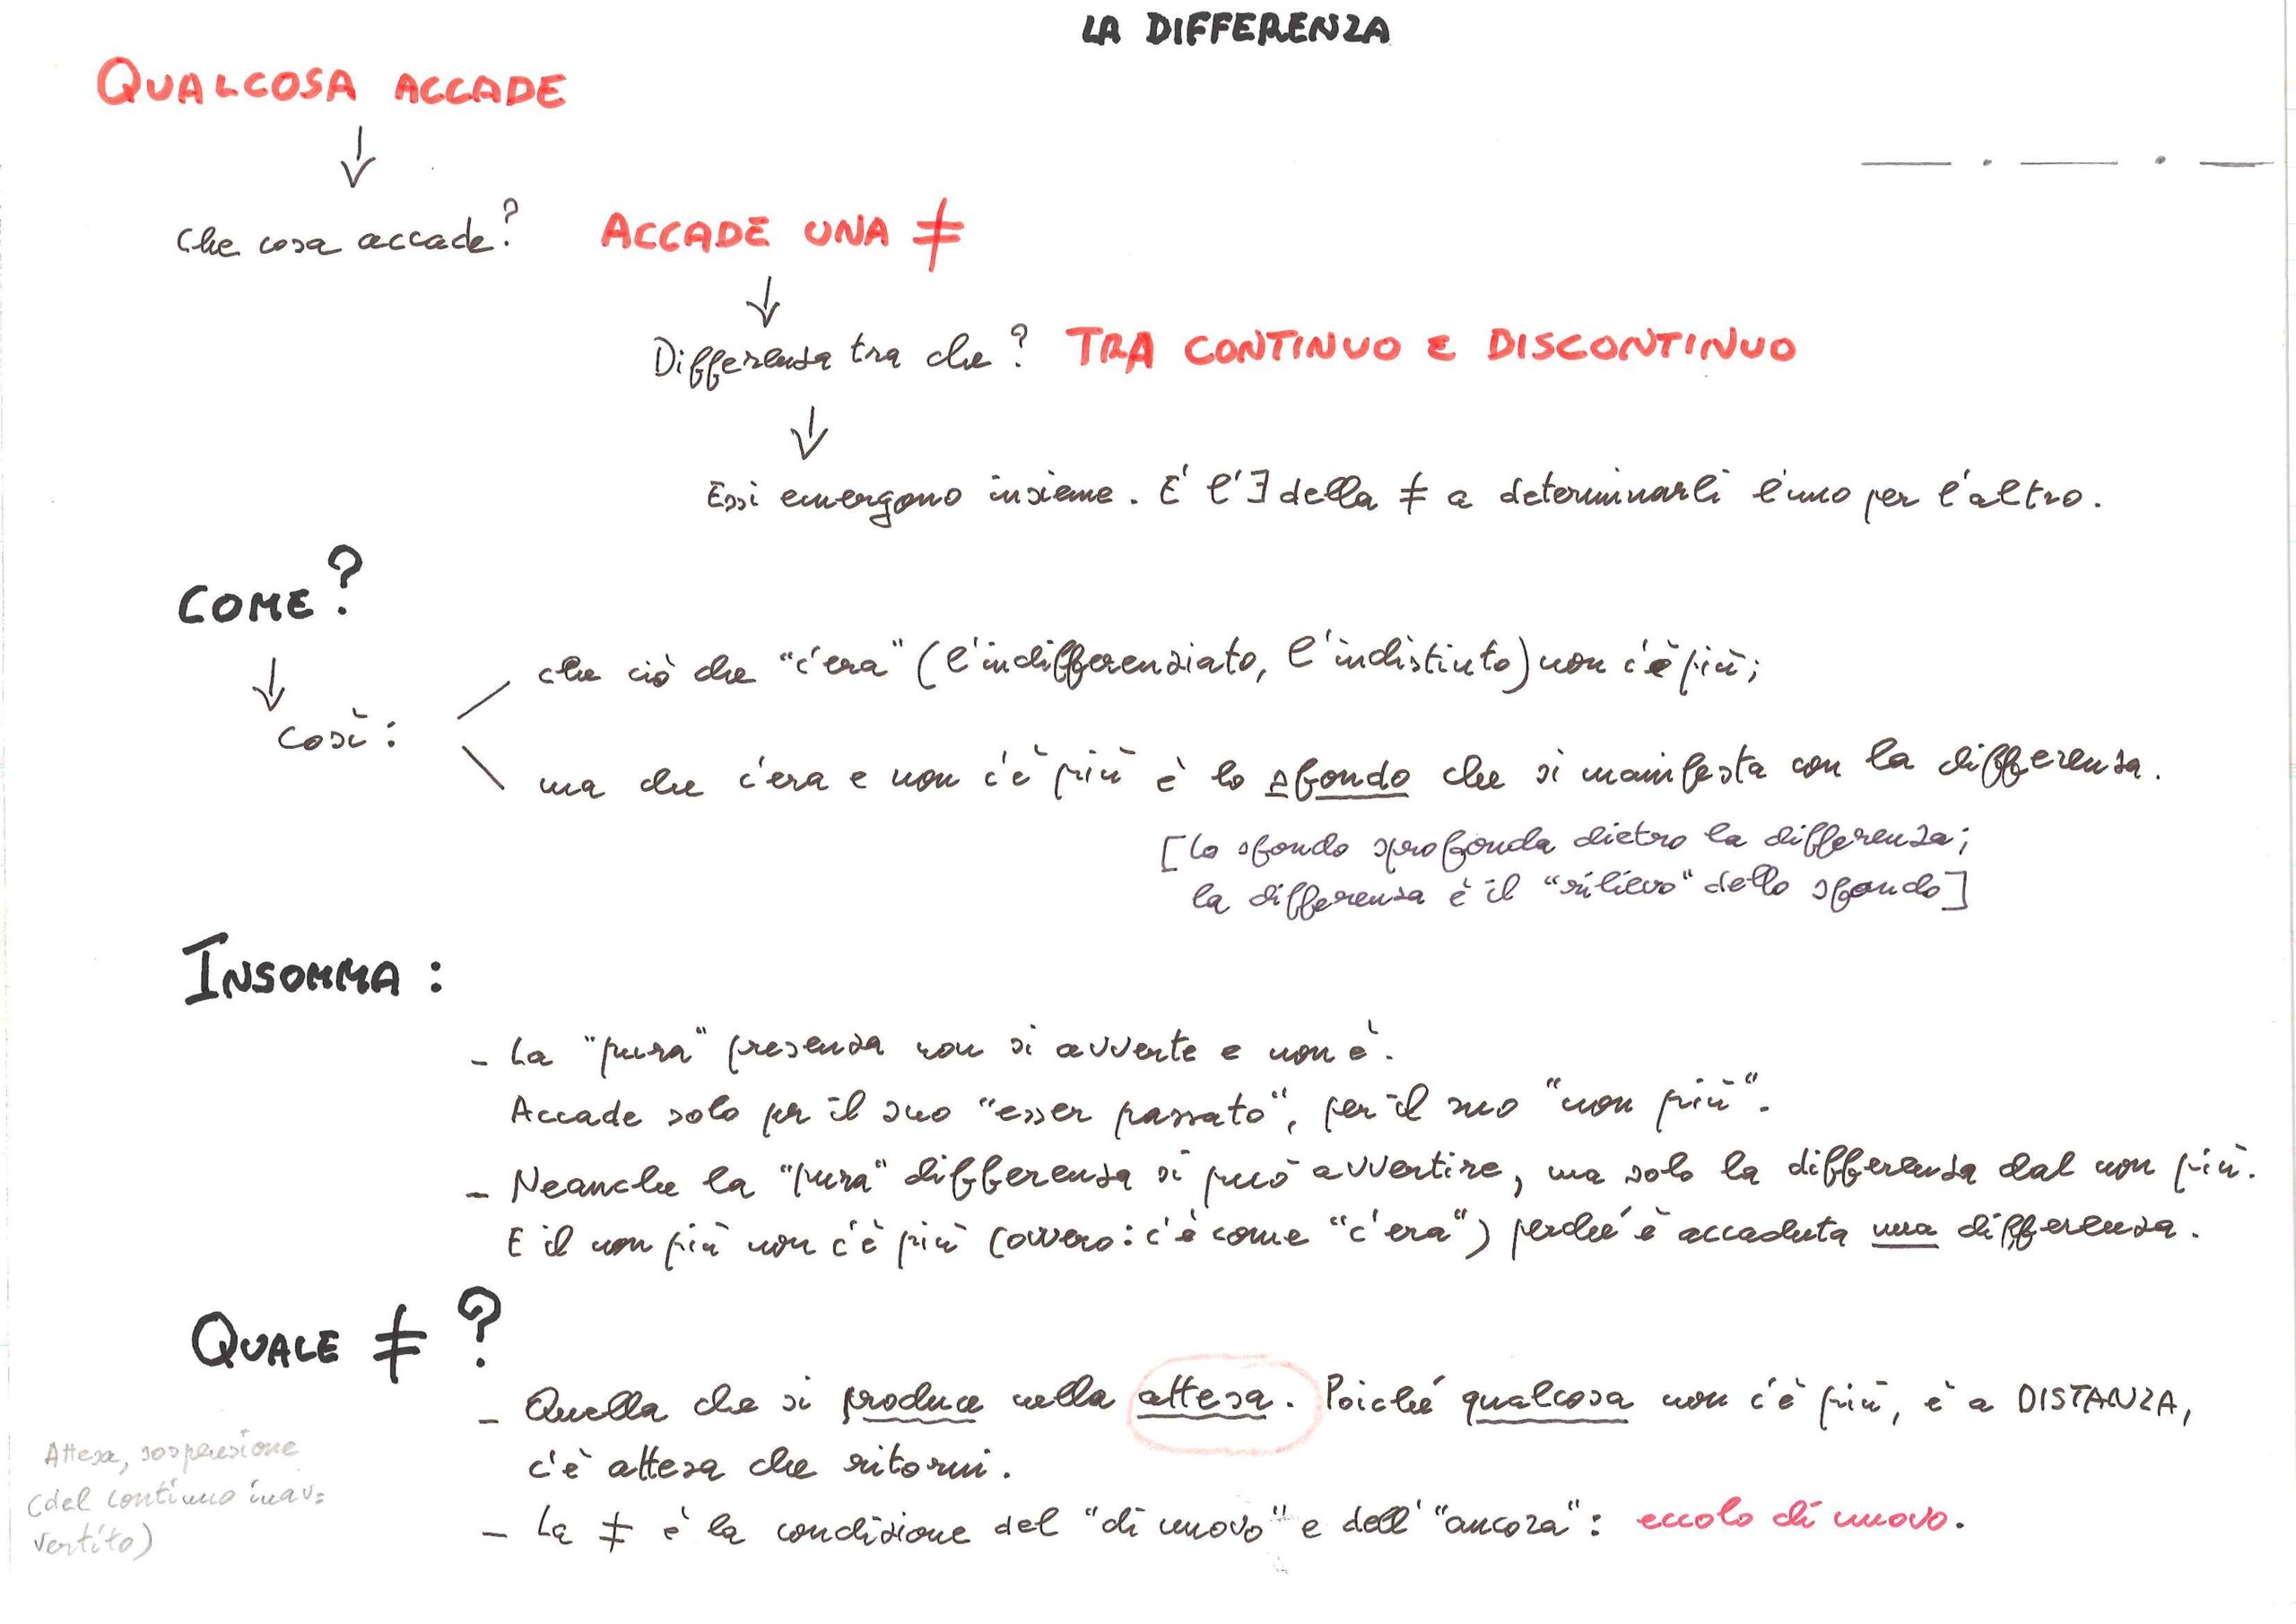 LA DIFFERENZA
QUALCOSA ACCADE
Che cosa accade? ACCADE UNA ≠
Differenza tra che? TRA CONTINUO E DISCONTINUO
Essi emergono insieme. E' l'∃ della ≠ a determinarli l'uno per l'altro.
COME?
Così:
che ciò che "c'era" (l'indifferenziato, l'indistinto) non c'è più;
ma che c'era e non c'è più è lo sfondo che si manifesta con la differenza.
[lo sfondo sprofonda dietro la differenza;
la differenza è il "rilievo" dello sfondo]
INSOMMA:
- La "pura" presenza non si avverte e non è.
Accade solo per il suo "esser passato", per il suo "non più".
- Neanche la "pura" differenza si può avvertire, ma solo la differenza dal non più.
E il non più non c'è più (ovvero: c'è come "c'era") perché è accaduta una differenza.
QUALE ≠ ?
- Quella che si produce nella attesa. Poiché qualcosa non c'è più, è a DISTANZA,
c'è attesa che ritorni.
- La ≠ è la condizione del "di nuovo" e dell'"ancora": eccolo di nuovo.
Attesa, sospensione
(del continuo inav=
vertito)